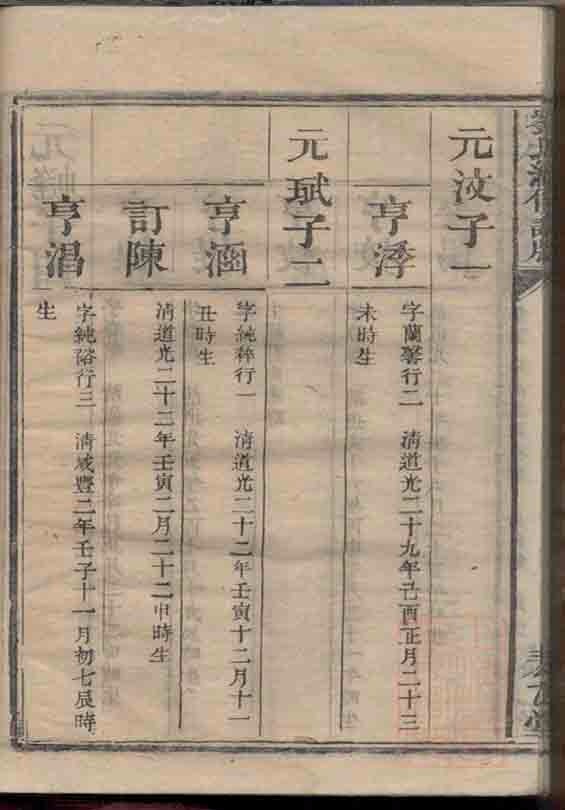 元汶子一
亨澤
字蘭馨行二　清道光二十九年己酉正月二十三
未時生
元珷子二
亨涵
字純粹行一　清道光二十二年壬寅十二月十一
丑時生
訂陳
清道光二十二年壬寅二月二十二申時生
亨淐
字純裕行三　清咸豐二年壬子十一月初七辰時
生